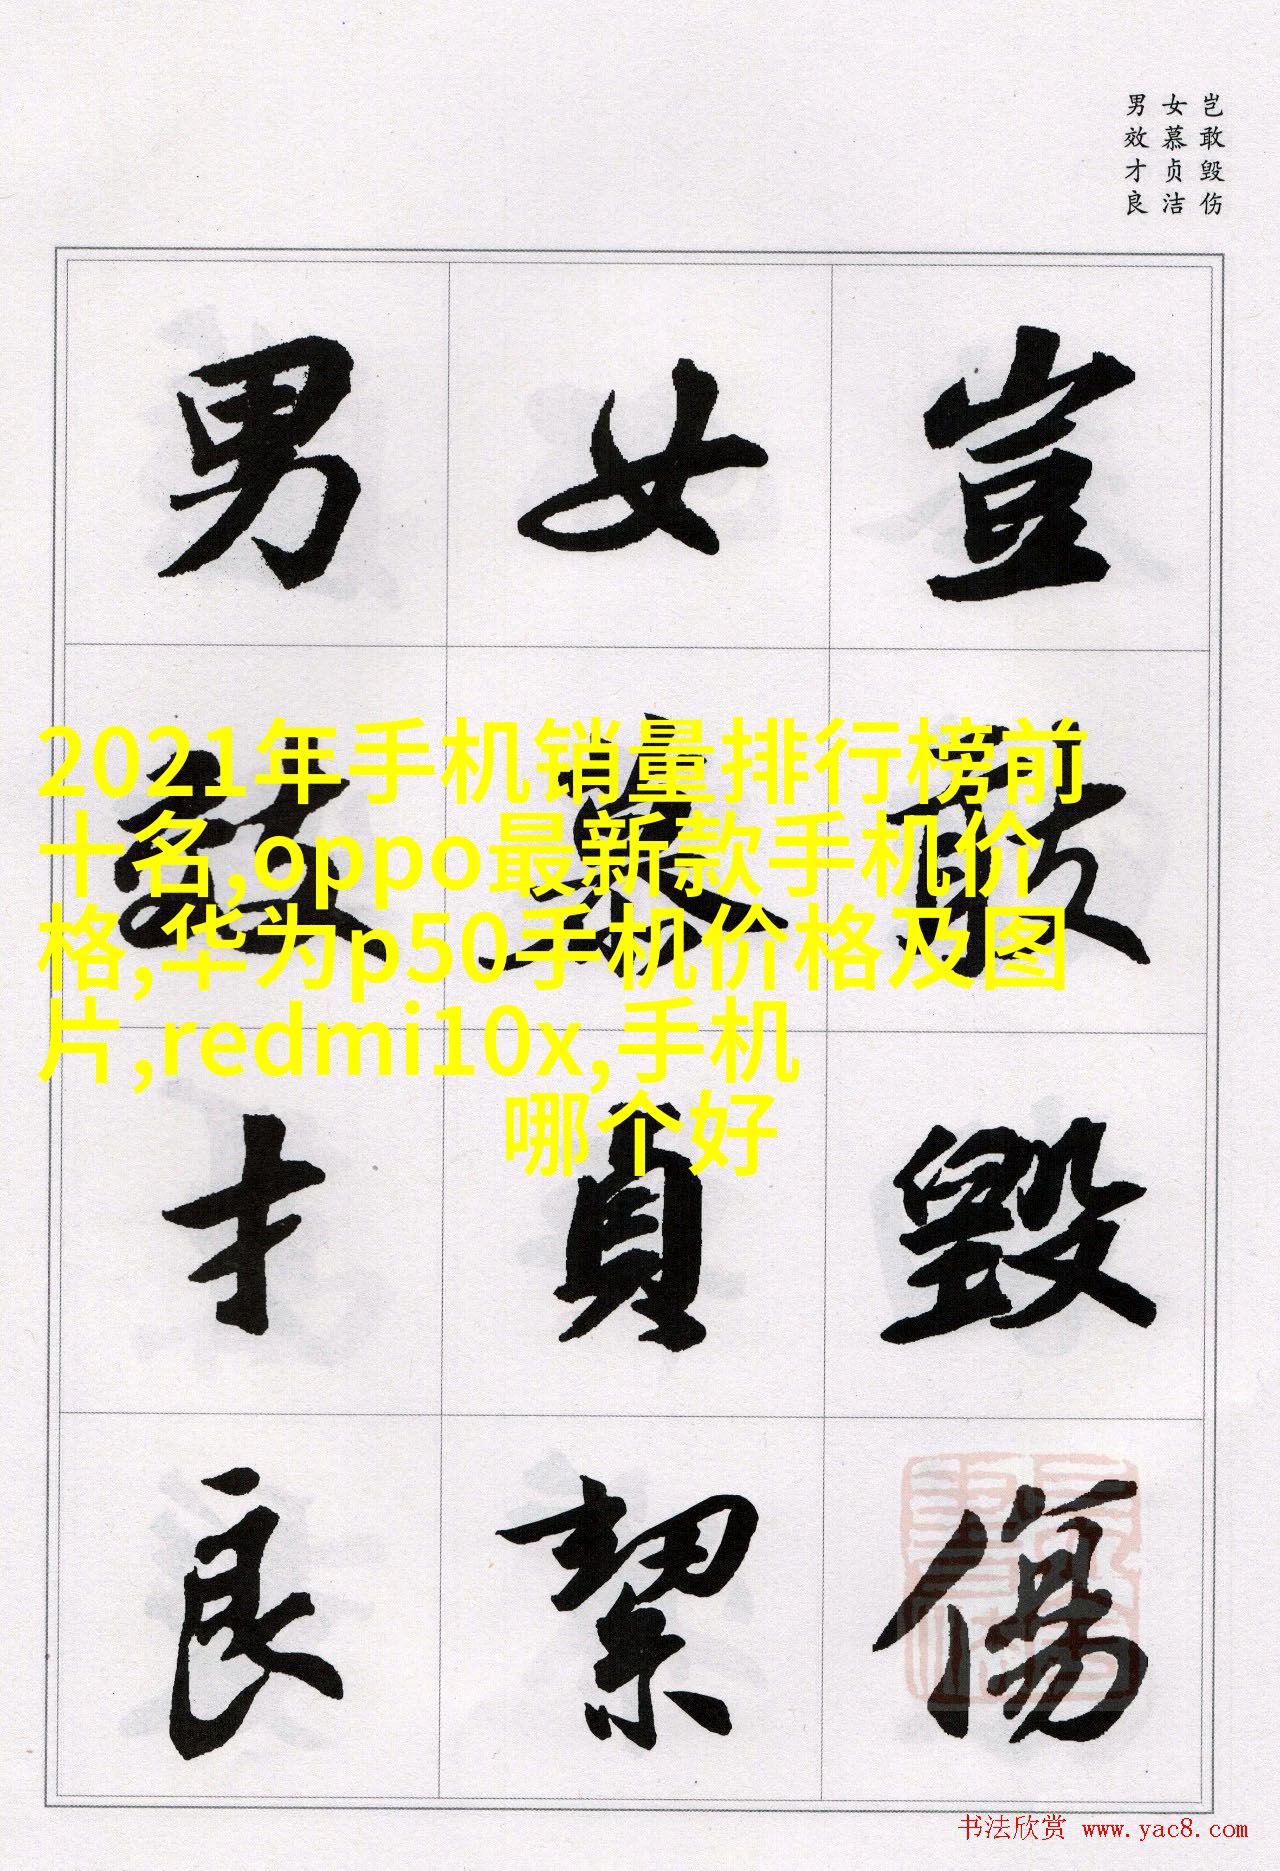 岂敢毁伤
女慕贞洁
男效才良
豈敢毀傷
女慕貞絜
男效才良
2021年手机销量排行榜前
十名,oppo最新款手机价
格,华为p50手机价格及图
片,redmi10x,手机
哪个好
书法欣赏 www.yac8.com